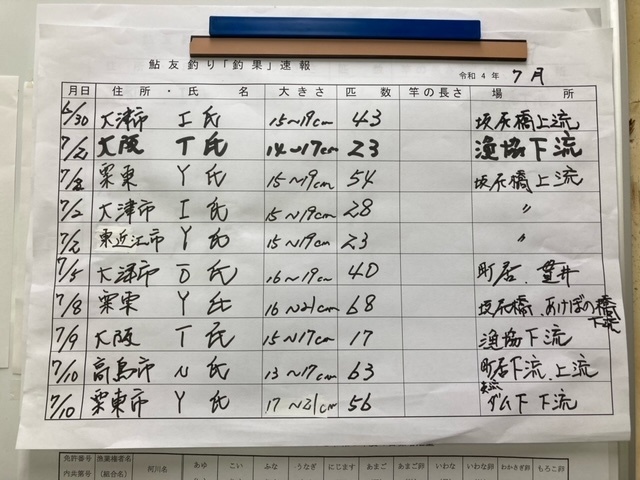 鮎友釣り「釣果」速報
令和4年 7月
月日 住所・氏名 大きさ 匹数 竿の長さ 場所
6/30 大津市 I氏 15~19cm 43 坂尻橋上流
7/2 大阪 T氏 14~17cm 23 漁協下流
7/2 栗東 Y氏 15~19cm 54 坂尻橋上流
7/2 大津市 I氏 15~19cm 28 〃
7/2 東近江市 Y氏 15~19cm 23 〃
7/5 大津市 O氏 16~19cm 40 町居.
7/8 栗東 Y氏 16~21cm 68 坂尻橋.あけぼの橋下流
7/9 大阪 T氏 15~17cm 17 漁協下流
7/10 高島市 N氏 13~17cm 63 町居下流.上流
7/10 栗東市 Y氏 17~21cm 56 ダム下下流
免許番号 漁業権者名 河川名 あゆ こい ふな うなぎ にじます あまご あまご卵 いわな いわな卵 わかさぎ卵 もろこ卵
内共第号 (組合名)